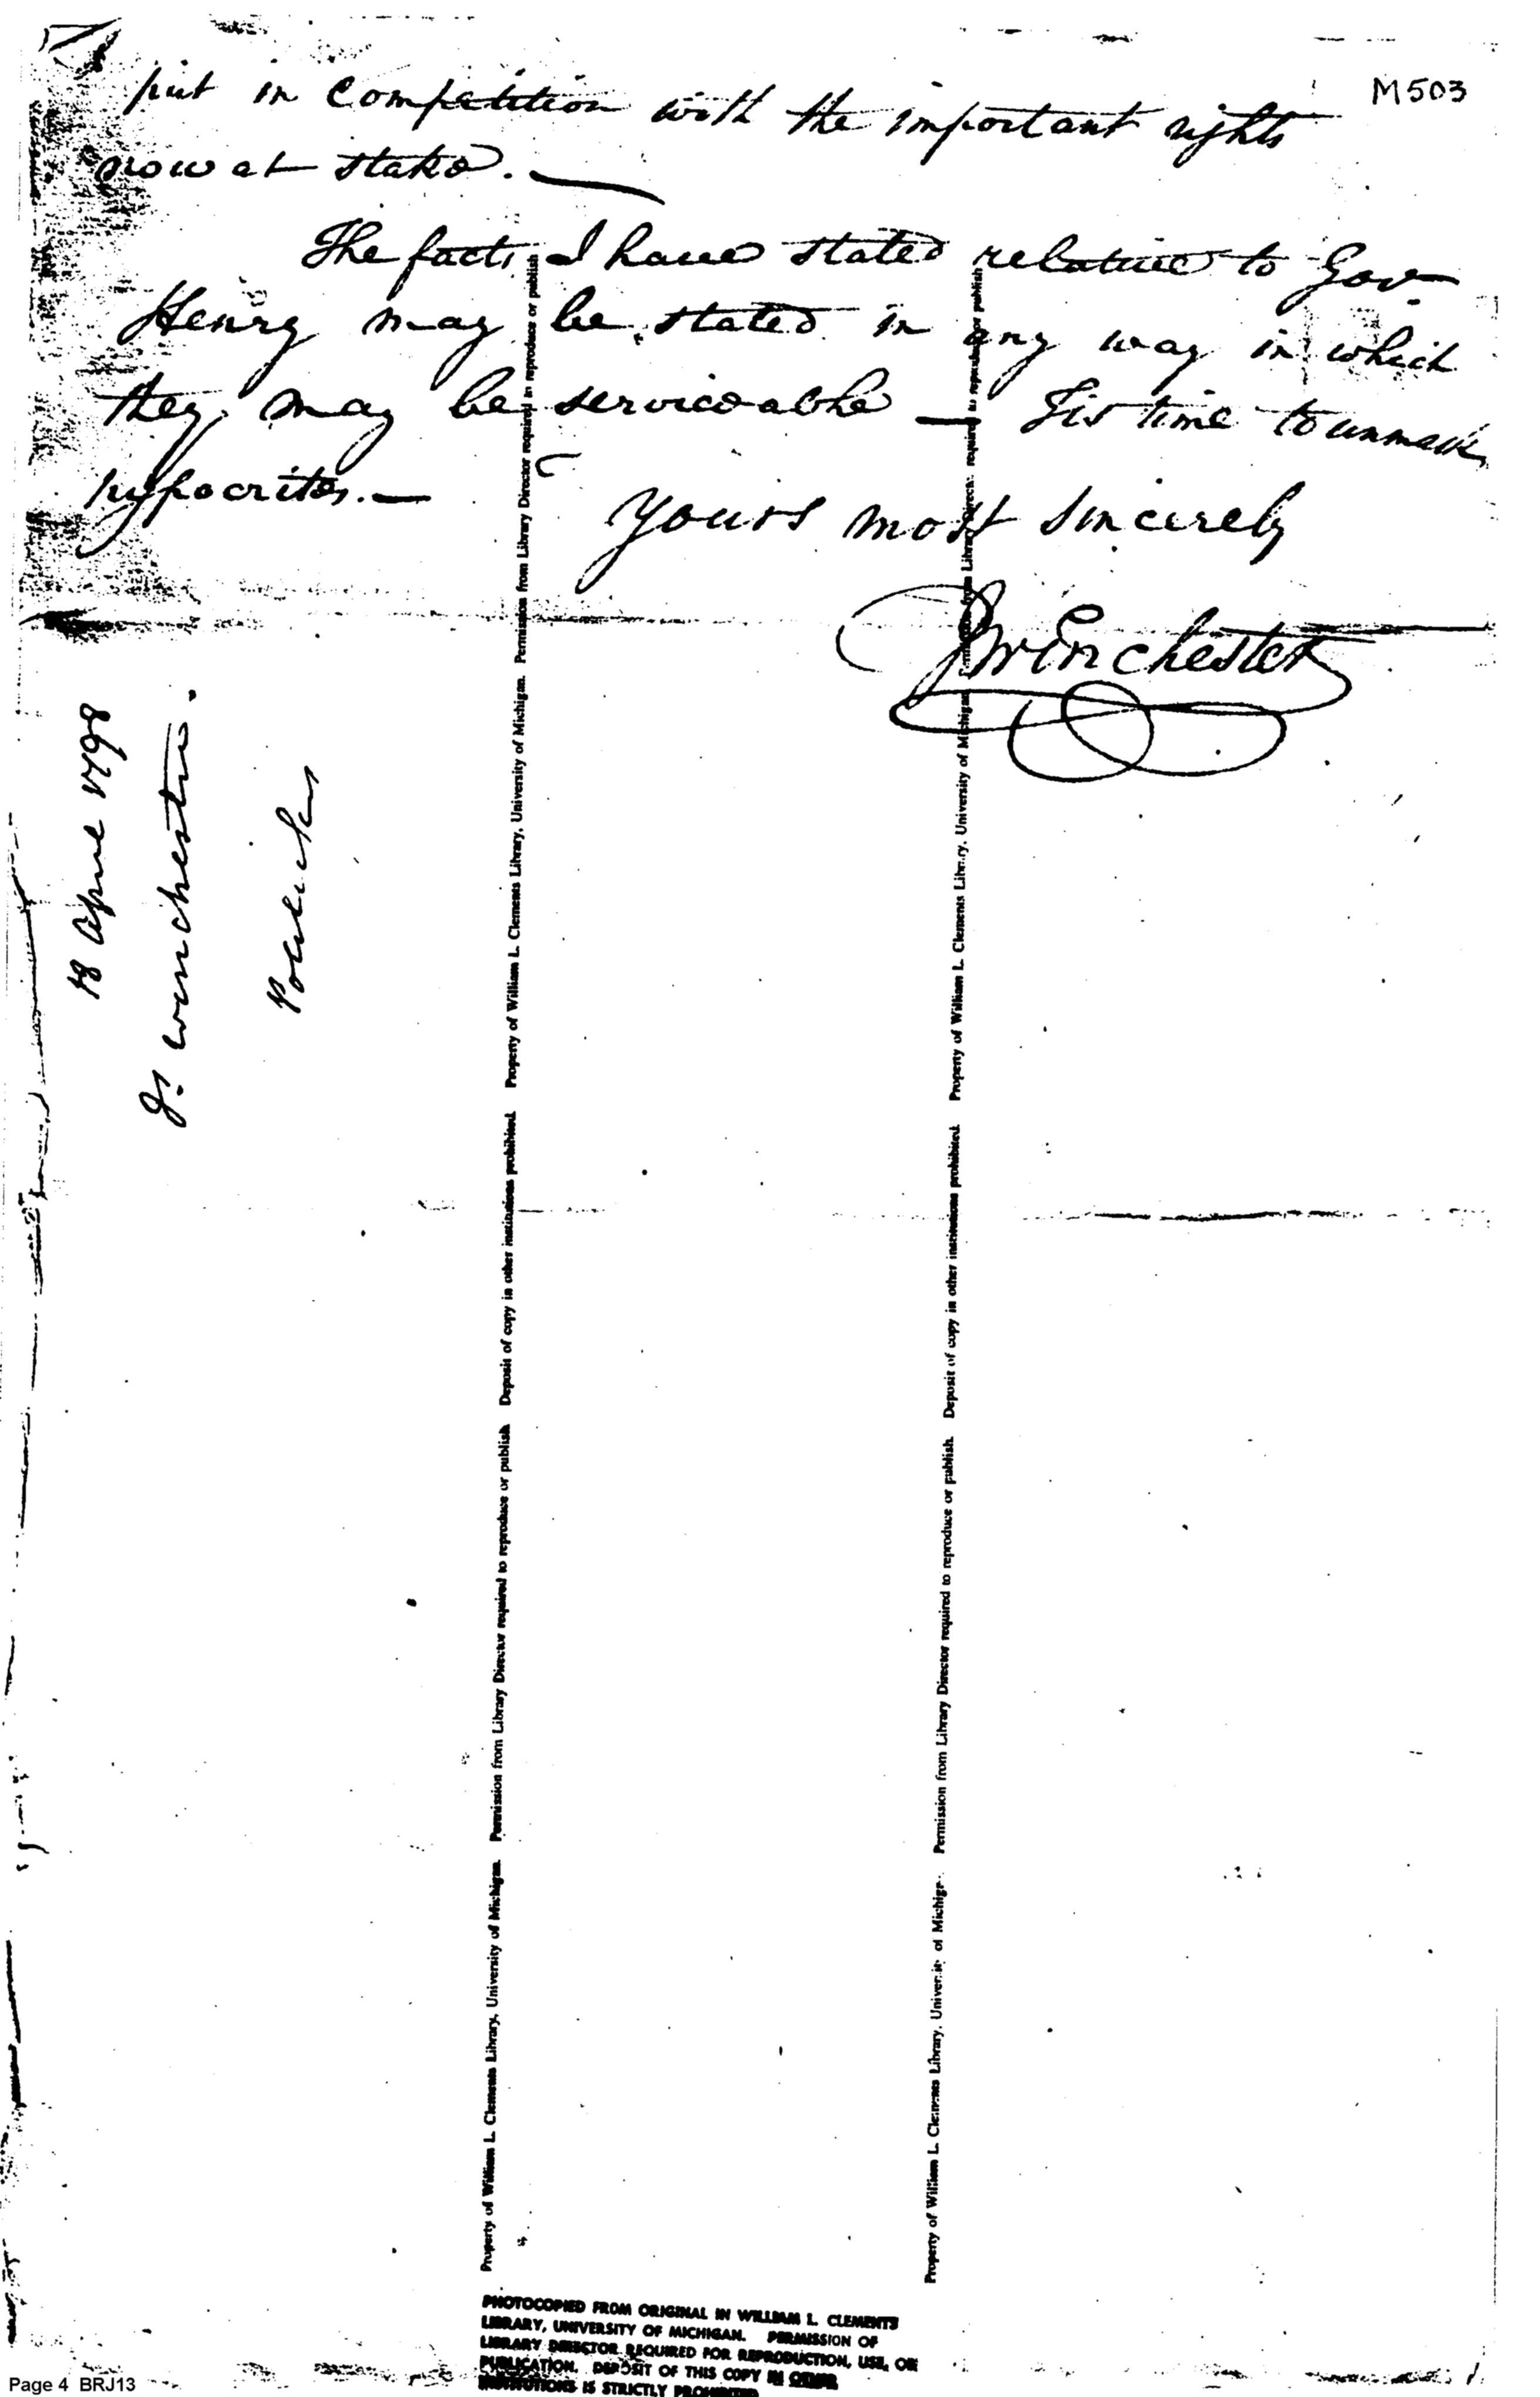 M503
put in Competition with the important rights
now at stake. —
The facts I have stated relative to Gov.
Henry may be stated in any way in which
they may be serviceable — Tis time to unmask
hypocrites. —
Yours most sincerely
J Winchester
18 April 1798
Js. Winchester.
Politicks
Property of William L. Clements Library, University of Michigan. Permission from Library Director required to reproduce or publish. Deposit of copy in other institutions prohibited. Property of William L. Clements Library, University of Michigan. Permission from Library Director required to reproduce or publish
Property of William L. Clements Library, University of Michigan. Permission from Library Director required to reproduce or publish. Deposit of copy in other institutions prohibited. Property of William L. Clements Library, University of Michigan. Permission from Library Director required to reproduce or publish
PHOTOCOPIED FROM ORIGINAL IN WILLIAM L. CLEMENTS
LIBRARY, UNIVERSITY OF MICHIGAN. PERMISSION OF
LIBRARY DIRECTOR REQUIRED FOR REPRODUCTION, USE, OR
PUBLICATION. DEPOSIT OF THIS COPY IN OTHER
INSTITUTIONS IS STRICTLY PROHIBITED
Page 4 BRJ13